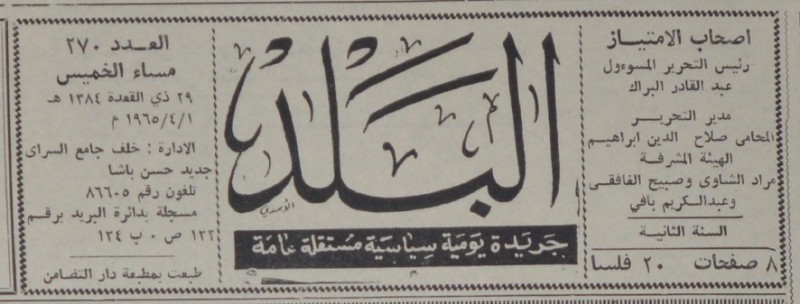 اصحاب الامتياز
رئيس التحرير المسوءول
عبد القادر البراك
مدير التحرير
المحامى صلاح الدين ابراهيم
الهيئة المشرفة
مراد الشاوى وصبيح الغافقى
وعبدالكريم بافي
السنة الثانية
٨ صفحات ٢٠ فلسا
البلد
جريدة يومية سياسية مستقلة عامة
العدد ٢٧٠
مساء الخميس
٢٩ ذي القعدة ١٣٨٤ هـ
١٩٦٥/٤/١ م
الادارة : خلف جامع السراى
جديد حسن باشا
تلغون رقم ٨٦٦٠٥
مسجلة بدائرة البريد برقم
١٢٢ ص ٠ ب ١٣٤
طبعت بمطبعة دار التضامن